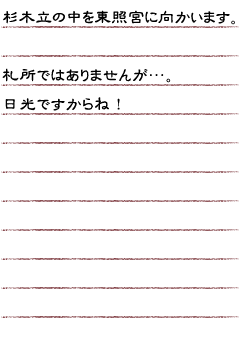 杉木立の中を東照宮に向かいます。
札所ではありませんが…。
日光ですからね！